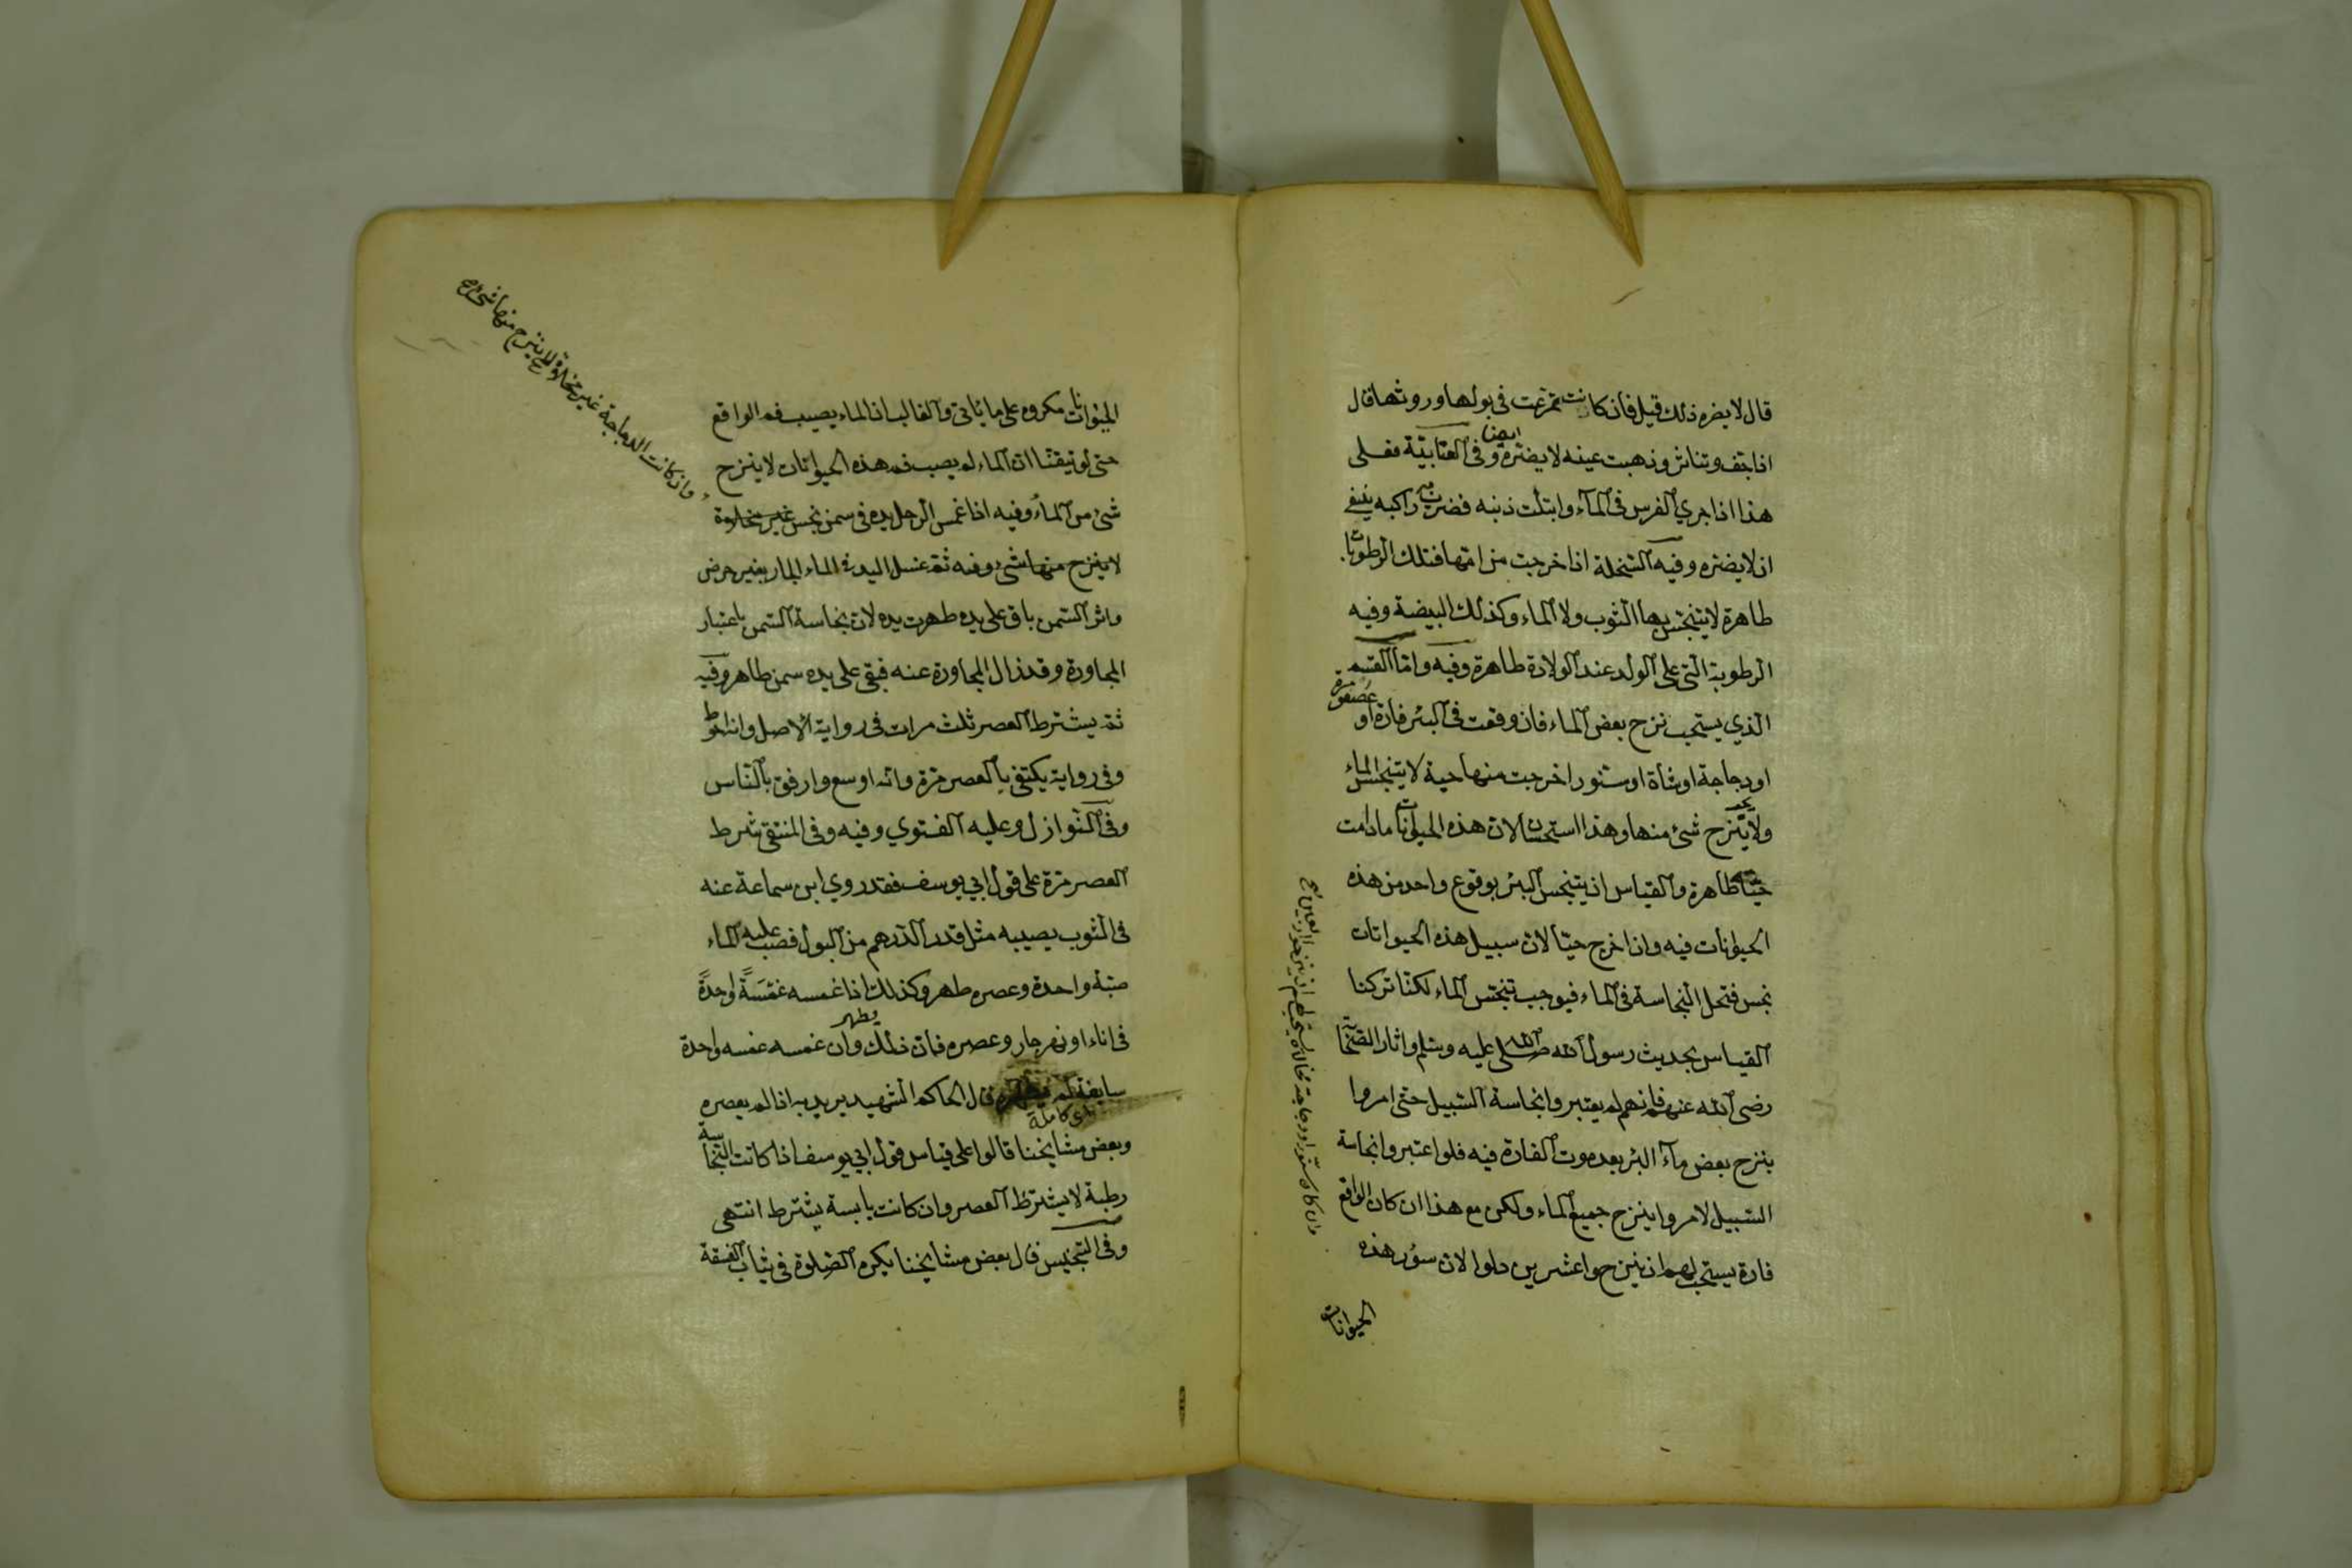 قال لا يضره ذلك قيل فان كانت تمرغت فى بولها وروثها قال
اذا جف وتناثر وذهبت عينه لا يضره ايضا وفى العتابية فعلى
هذا اذا جرى الفرس فى المآء وابتلت ذنبه فضرب به راكبه ينبغى
ان لا يضره وفيه السخلة اذا خرجت من امها فتلك الرطوبات
طاهرة لا يتنجس بها الثوب ولا المآء وكذلك البيضة وفيه
الرطوبة التى على الولد عند الولادة طاهرة وفيه واما القسم
الذي يستحب نزح بعض المآء فان وقعت فى البئر فارة او عصفورة
او دجاجة او شاة او سنور اخرجت منها حية لا يتنجس المآء
ولا ينزح شئ منها وهذا استحسان لان هذه الحيوانات ما دامت
حية طاهرة والقياس ان يتنجس البئر بوقوع واحد من هذه
الحيوانات فيه وان اخرج حيا لان سبيل هذه الحيوانات
نجس فتحل النجاسة فى المآء فيوجب تنجس المآء لكنا تركنا
القياس بحديث رسول الله صلى الله عليه وسلم واثار الصحابة
رضى الله عنهم فانهم لم يعتبروا نجاسة السبيل حتى امروا
بنزح بعض مآء البئر بعد موت الفارة فيه فلو اعتبروا نجاسة
السبيل لامروا بنزح جميع المآء ولكن مع هذا ان كان الواقع
فارة يستحب لهم ان ينزحوا عشرين دلوا لان سؤر هذه
الحيوانات
وان كان سنورا او دجاجة مخلاة يستحب لهم ان ينزحوا اربعين
الحيوانات مكروه على ما يأتى والغالب ان المآء يصيب فم الواقع
حتى لو تيقنا ان المآء لم يصب فم هذه الحيوانات لا ينزح
شئ من المآء وفيه اذا غمس الرجل يده فى سمن نجس غير مخلاوة
لا ينزح منها شئ وفيه ثم غسل اليد فى المآء الجار بغير حرض
واثر السمن باق على يده طهرت يده لان نجاسة السمن باعتبار
المجاورة وقد زال المجاورة عنه فبقى على يده سمن طاهر وفيه
ثم يشترط العصر ثلث مرات فى رواية الاصل وانه احوط
وفى رواية يكتفى بالعصر مرة وانه اوسع وارفق بالناس
وفى النوازل وعليه الفتوي وفيه وفى المنتقى شرط
العصر مرة على قول ابي يوسف فقد روي ابن سماعة عنه
فى الثوب يصيبه مثل قدر الدرهم من البول فصب عليه المآء
صبة واحدة وعصره طهر وكذلك اذا غمسه غمسة واحدة
فى اناء او نهر جار وعصره فان ذلك يطهر وان غمسه غمسة واحدة
سابغة قال الحاكم الشهيد يريد به اذا لم يعصره
اى كاملة
وبعض مشايخنا قالوا على قياس قول ابي يوسف اذا كانت النجاسة
رطبة لا يشترط العصر وان كانت يابسة يشترط انتهى
وفى التجنيس قال بعض مشايخنا يكره الصلوة فى ثياب الفسقة
وان كانت الدجاجة غير مخلاة لا ينزح منها شئ